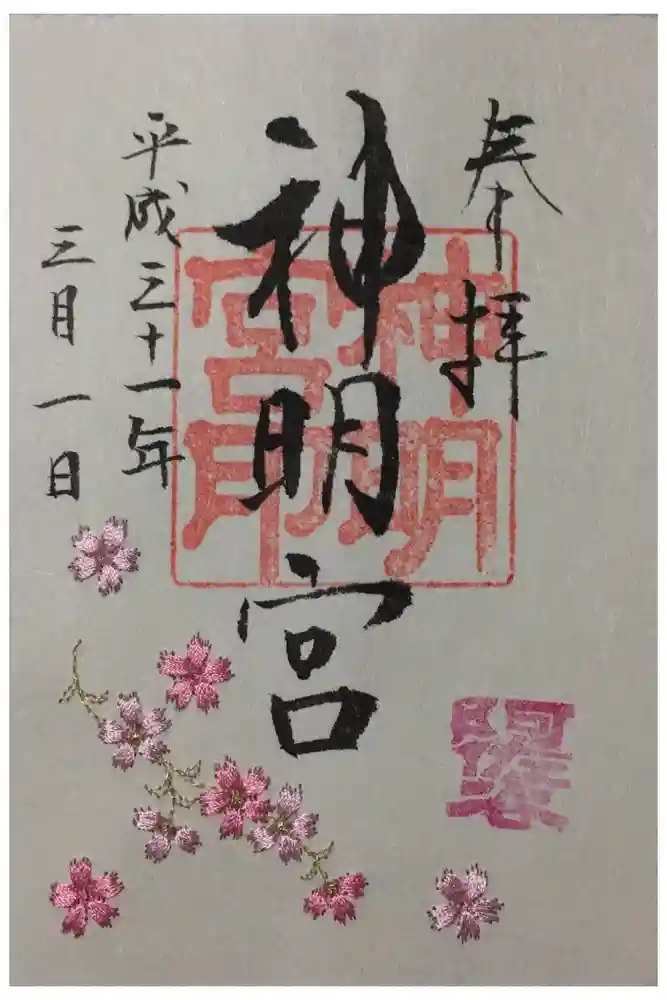 奉拝
神明宮
神明宮印
平成三十一年
三月一日